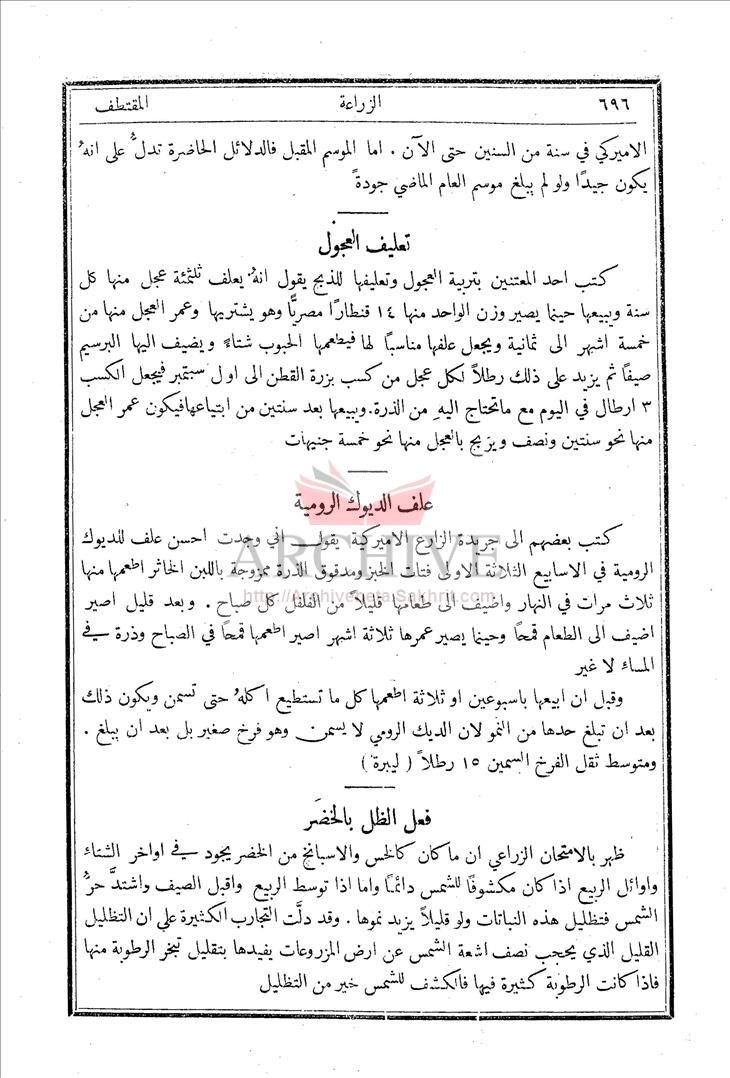 ٦٩٦ الزراعة المقتطف
الاميركي في سنة من السنين حتى الآن . اما الموسم المقبل فالدلائل الحاضرة تدلُّ على انهُ
يكون جيدًا ولو لم يبلغ موسم العام الماضي جودةً
تعليف العجول
كتب احد المعتنين بتربية العجول وتعليفها للذبح يقول انهُ يعلف ثلثمئة عجل منها كل
سنة ويبيعها حينما يصير وزن الواحد منها ١٤ قنطارًا مصريًّا وهو يشتريها وعمر العجل منها من
خمسة اشهر الى ثمانية ويجعل علفها مناسبًا لها فيطعمها الحبوب شتاءً ويضيف اليها البرسيم
صيفًا ثم يزيد على ذلك رطلاً لكل عجل من كسب بزرة القطن الى اول سبتمبر فيجعل الكسب
٣ ارطال في اليوم مع ماتحتاج اليهِ من الذرة.ويبيعها بعد سنتين من ابتياعهافيكون عمر العجل
منها نحو سنتين ونصف ويربح بالعجل منها نحو خمسة جنيهات
علف الديوك الرومية
كتب بعضهم الى جريدة الزارع الاميركية يقول اني وجدت احسن علف للديوك
الرومية في الاسابيع الثلاثة الاولى فتات الخبز ومدقوق الذرة ممزوجة باللبن الخاثر اطعمها منها
ثلاث مرات في النهار واضيف الى طعامها قليلاً من الفلفل كل صباح . وبعد قليل اصير
اضيف الى الطعام قمحًا وحينما يصير عمرها ثلاثة اشهر اصير اطعمها قمحًا في الصباح وذرة في
المساء لا غير
وقبل ان ابيعها باسبوعين او ثلاثة اطعمها كل ما تستطيع اكلهُ حتى تسمن ويكون ذلك
بعد ان تبلغ حدها من النمو لان الديك الرومي لا يسمن وهو فرخ صغير بل بعد ان يبلغ .
ومتوسط ثقل الفرخ السمين ١٥ رطلاً ( ليبرة )
فعل الظل بالخضَر
ظهر بالامتحان الزراعي ان ما كان كالخس والاسبانخ من الخضر يجود في اواخر الشتاء
واوائل الربيع اذا كان مكشوفًا للشمس دائمًا واما اذا توسط الربيع واقبل الصيف واشتدَّ حرُّ
الشمس فتظليل هذه النباتات ولو قليلاً يزيد نموها . وقد دلَّت التجارب الكثيرة على ان التظليل
القليل الذي يحجب نصف اشعة الشمس عن ارض المزروعات يفيدها بتقليل تبخر الرطوبة منها
فاذا كانت الرطوبة كثيرة فيها فالكشف للشمس خير من التظليل
ARCHIVE
http://Archivebeta.Sakhrit.com